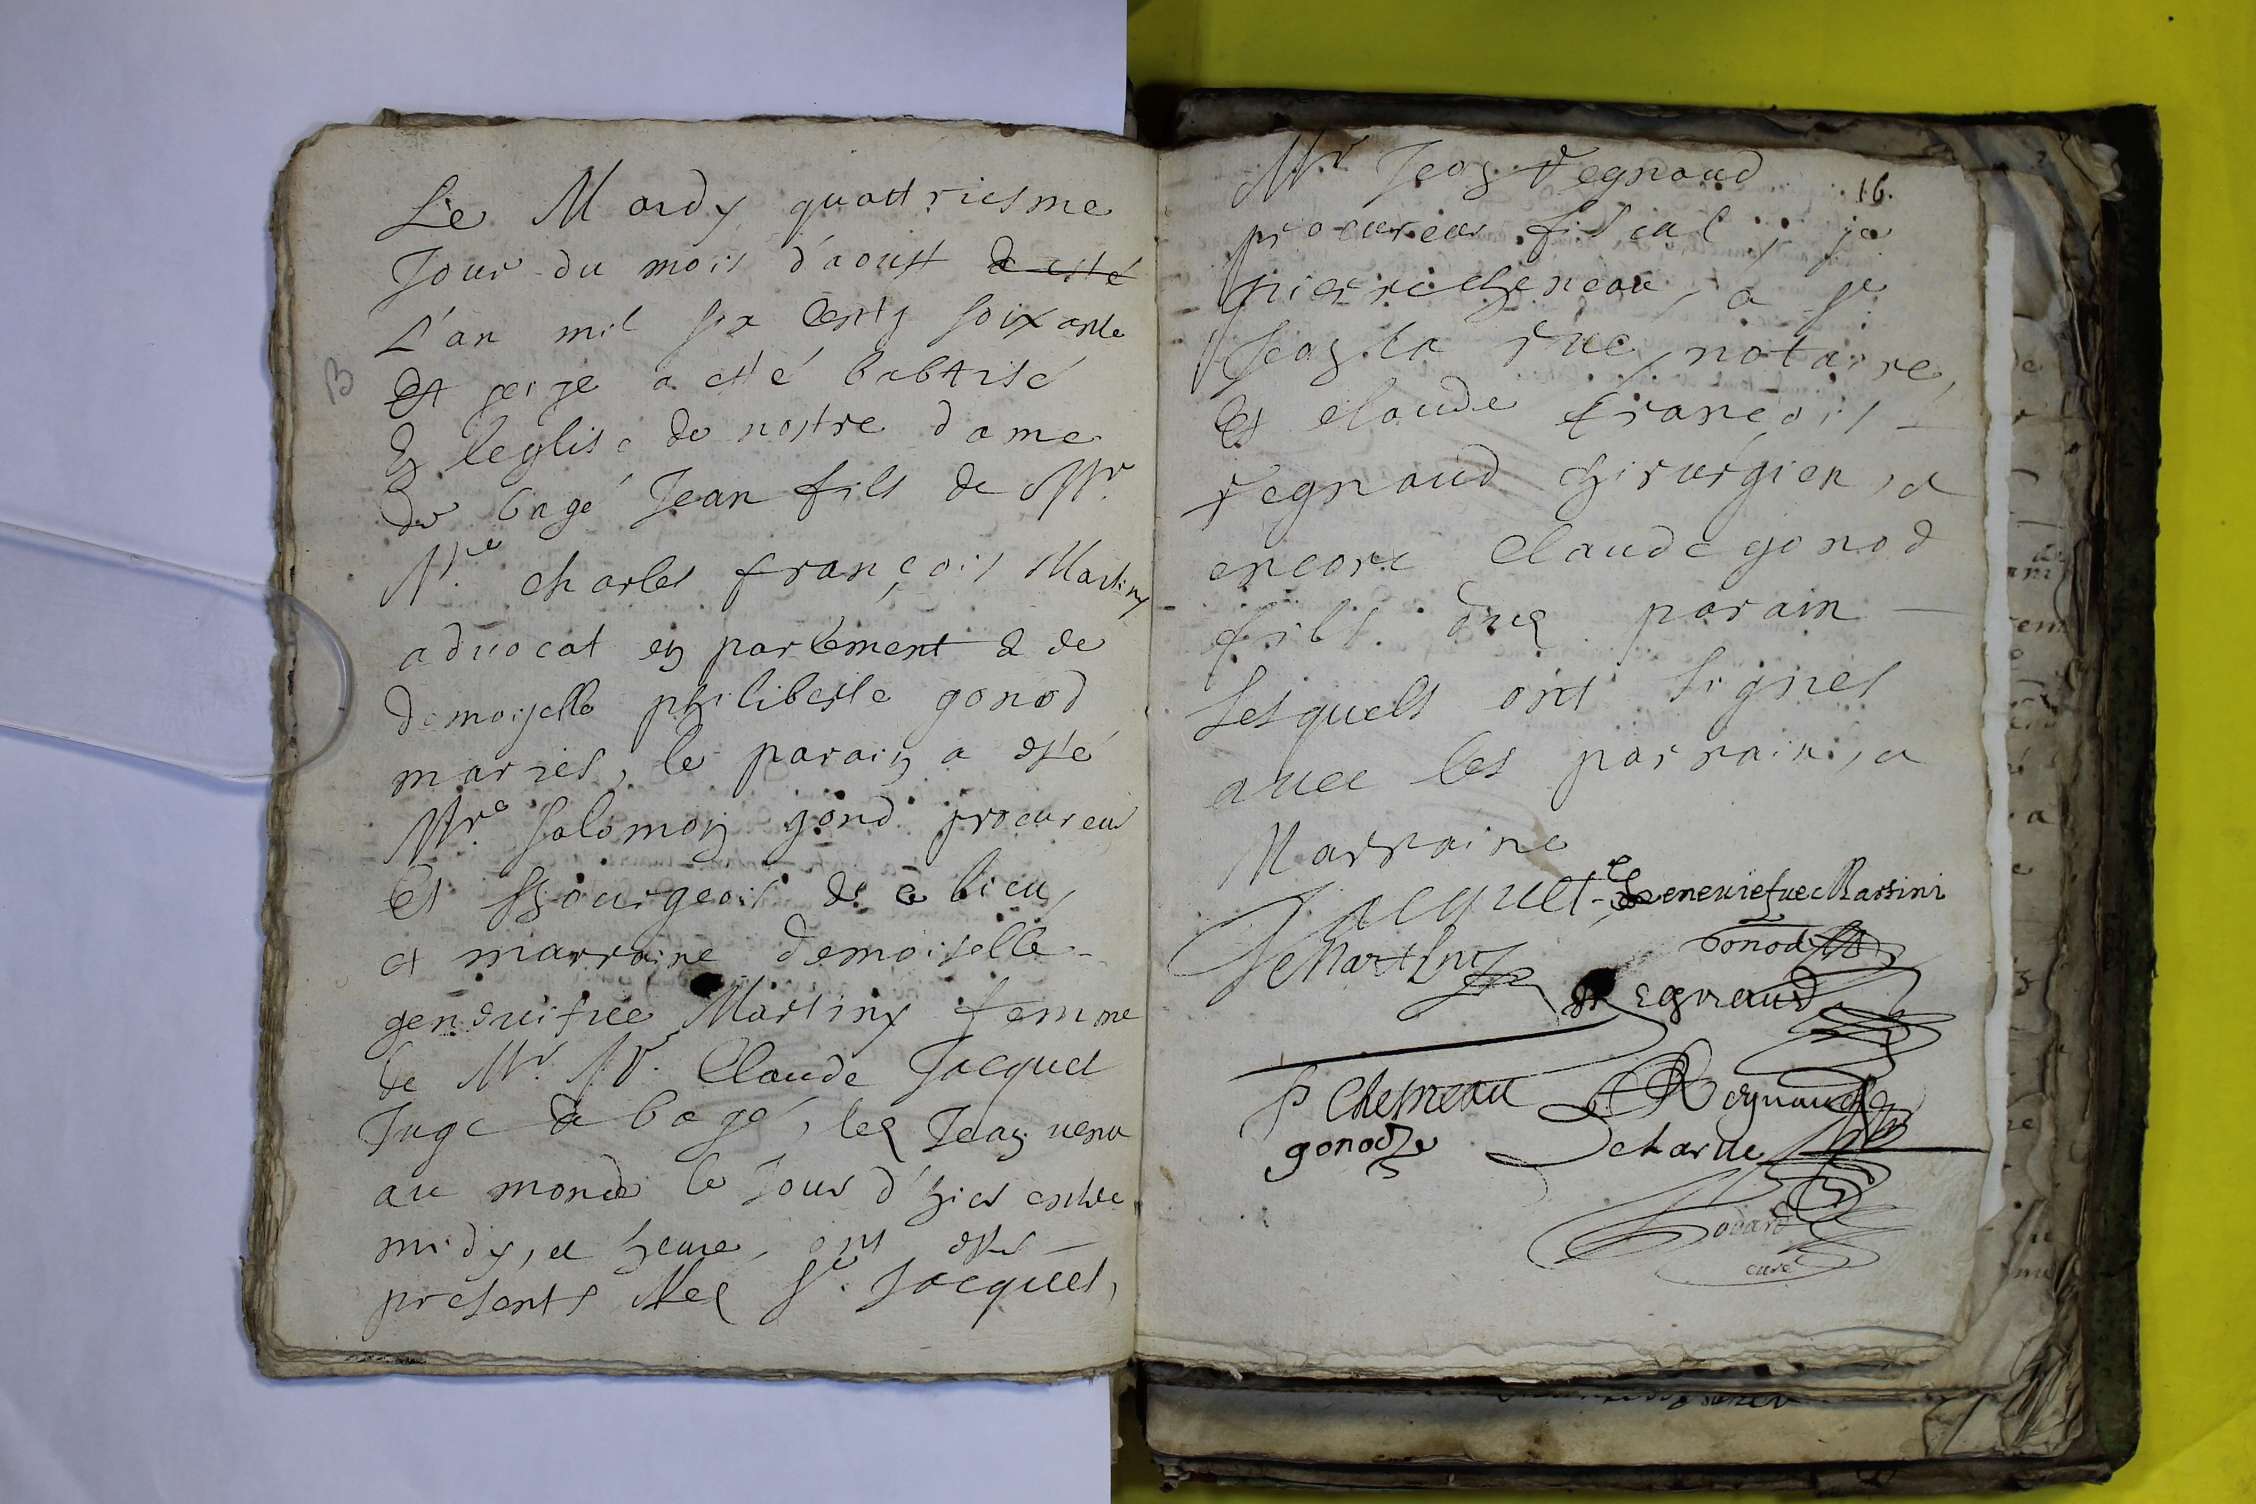 Le Mardy quattriesme
Jour du mois d'aoust a esté
L'an mil six Centz soixante
Et seize a esté babtisé
B
En leglise de nostre dame
De bagé Jean fils de Mr
Me charles françois Martiny
advocat en parlement & de
demoyselle philiberte gonod
mariés, le parain a esté
Mre Salomon gonod procureur
Et Bourgeois de ce lieu,
et marraine demoiselle
genevuifve Martiny femme
de Mr Me Claude Jacquet
Juge de bagé, led Jean venu
au monde le Jour d'hier entre
midy, et heure, ont esté
presents led Sr Jacquet,
16.
Mr Jean regnaud
procureur fiscal, sr
pierre cheneau, et sr
Jean la rue, notaire,
Et claude françois
regnaud chirurgien, et
encore Claude gonod
fils dud parain
Lesquels ont signes
avec les parrain, et
Marraine
Jacquet Geneviefve Martini
Martiny Gonod
Regnaud
P Chesneau Regnaud
gonod Delarue
curé